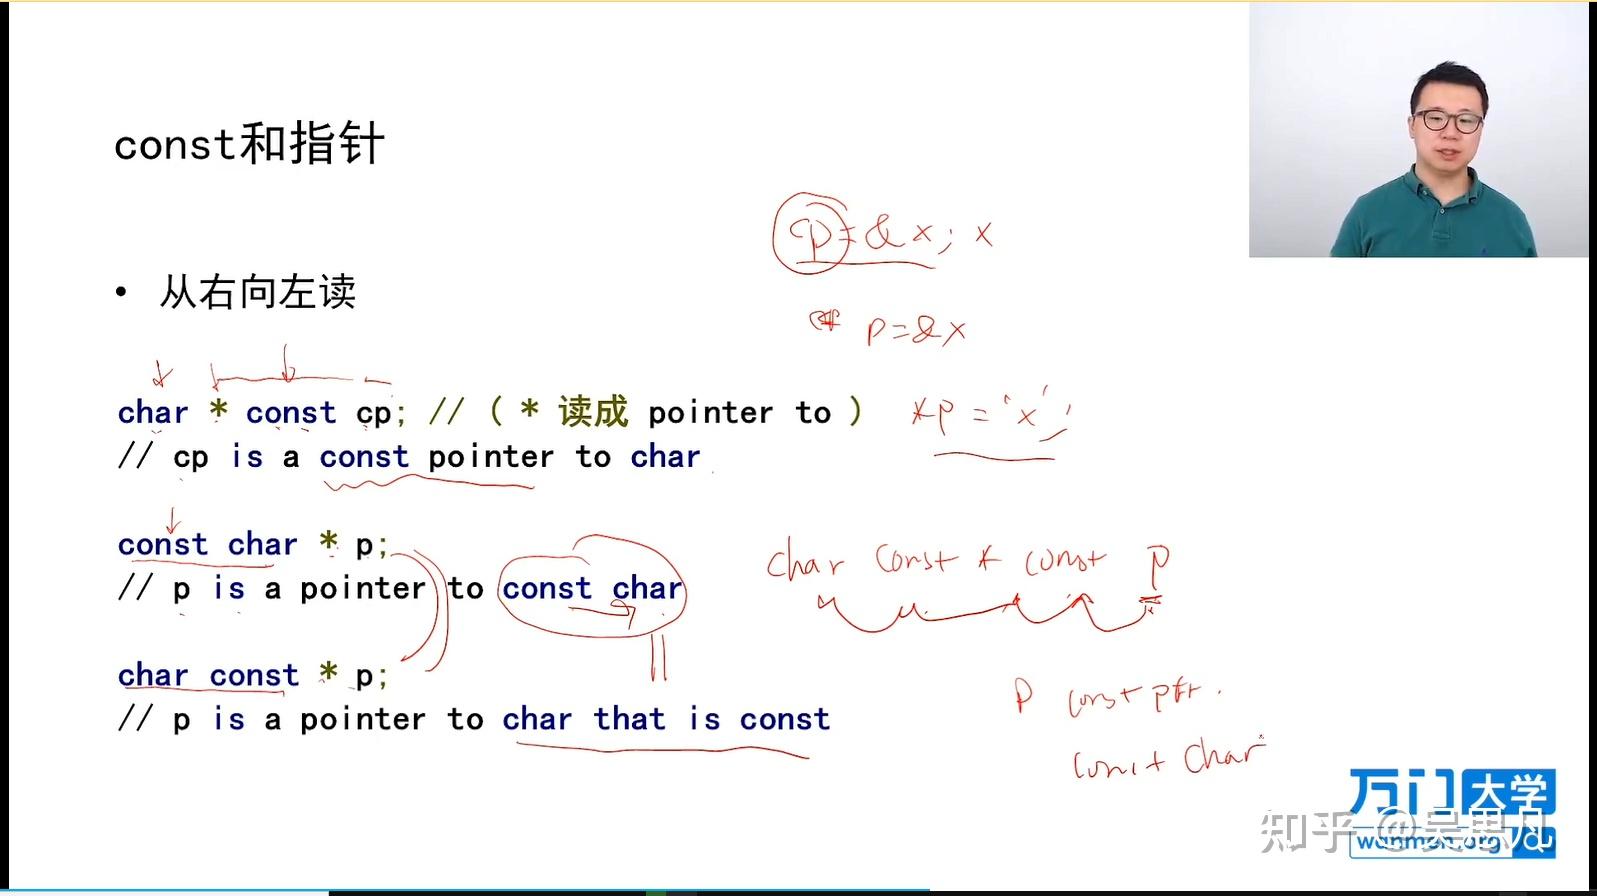 const和指针
p=&x; x
• 从右向左读
p=&x
char * const cp; // ( * 读成 pointer to )
*p = 'x';
// cp is a const pointer to char
const char * p;
// p is a pointer to const char
char const * const p
char const * p;
p const ptr.
// p is a pointer to char that is const
const char
万门大学
wanmen.org
知乎 @吴思凡